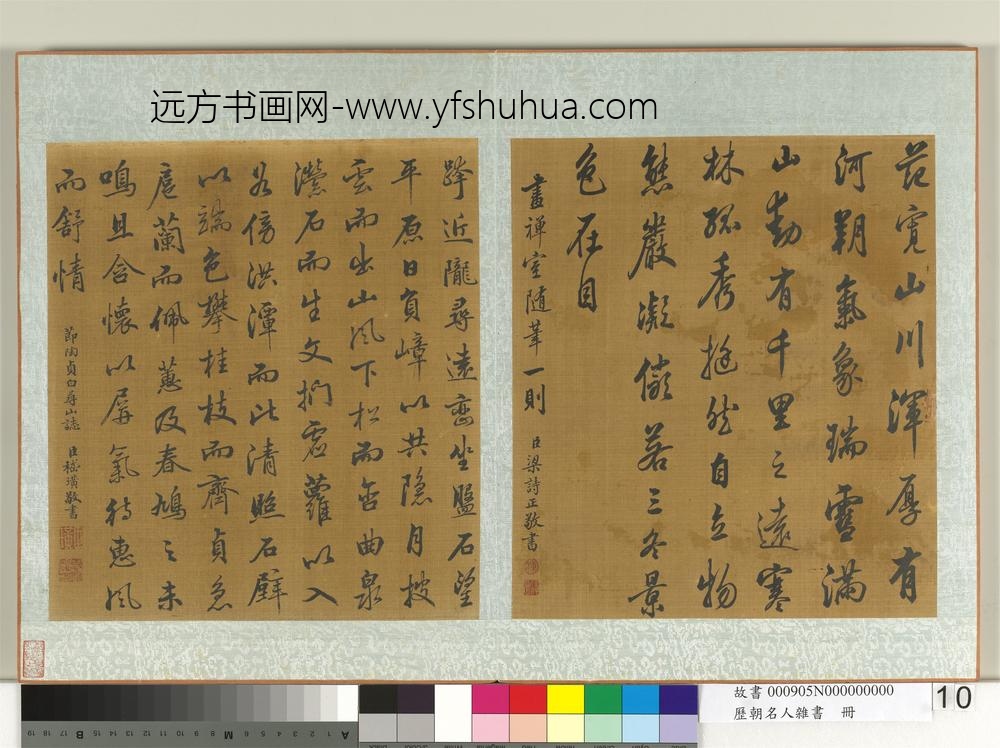 远方书画网-www.yfshuhua.com
范寬山川渾厚有
河朔氣象瑞雪滿
山動有千里之遠寒
林孤秀挺然自立物
態嚴凝儼若三冬景
色在目
畫禪室隨筆一則
臣梁詩正敬書
跨近隴尋遠巒坐盤石望
平原日負嶂以共隱月披
雲而出山風下松而含曲泉
瀠石而生文捫虛蘿以入
谷傍洪潭而比清照石壁
以端色攀桂枝而齊貞急
扈蘭而佩蕙及春鳩之未
鳴且含懷以屏氣待惠風
而舒情
節陶貞白尋山誌
臣嵇璜敬書
故書 000905N000000000
歷朝名人雜書 冊
10
19 18 17 16 15 14 13 12 11 10 9 8 7 M 6 5 4 3 2 1 A